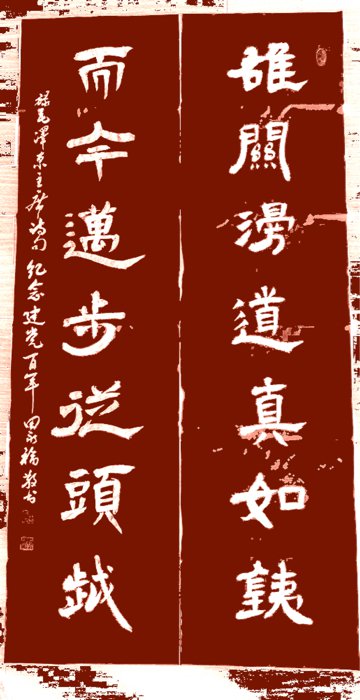 雄關漫道真如銕
而今邁步從頭越
録毛澤东主席詩句 纪念建党百年 田永福敬书